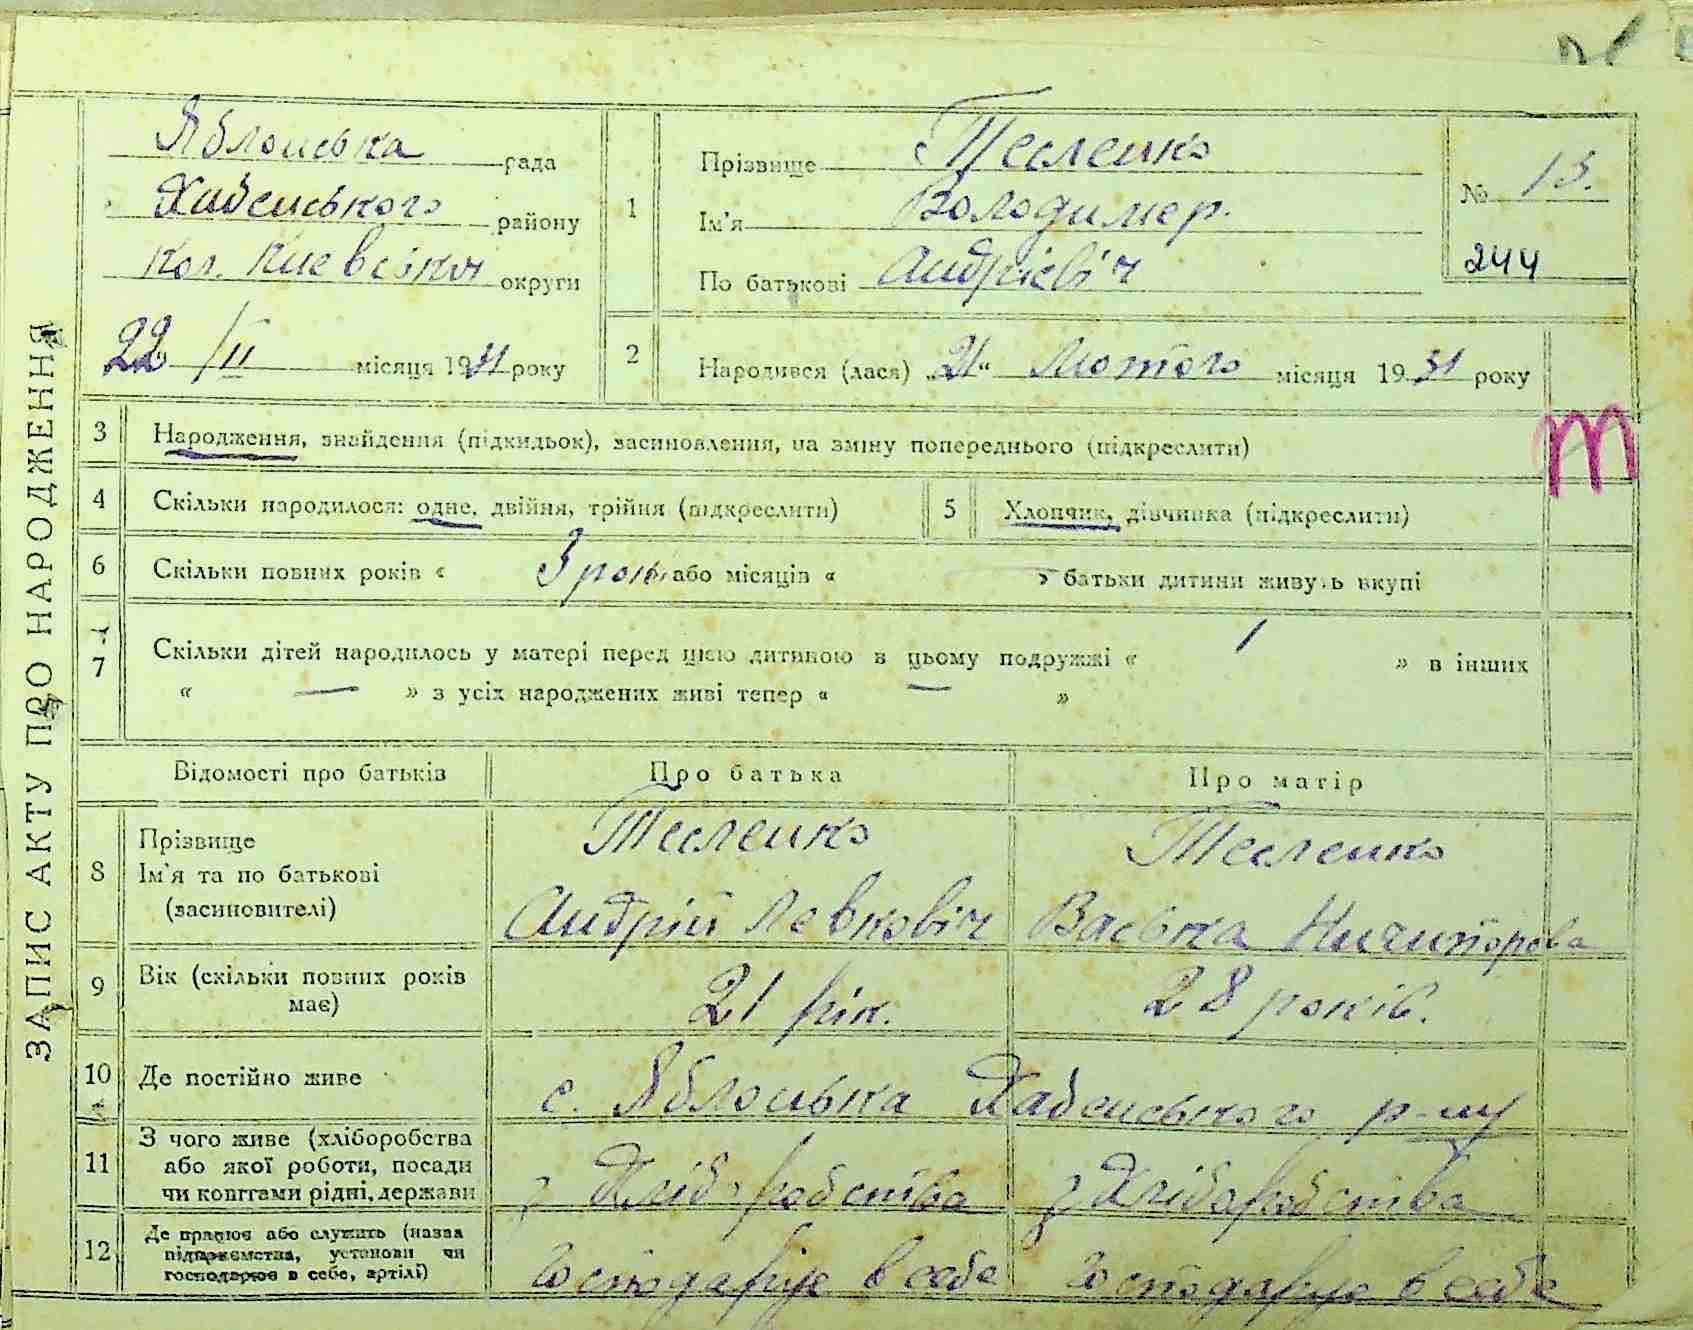 ЗАПИС АКТУ ПРО НАРОДЖЕННЯ
Яблонська рада
Хабенського району
кол. Киевськи округи
22 /II місяця 1931 року
1 Прізвище Тесленко
Ім'я Володимер.
По батькові Андрієвіч
№ 13.
244
2 Народився (лася) „21“ Лютого місяця 1931 року
3 Народження, знайдення (підкидьок), засиновлення, на зміну попереднього (підкреслити)
4 Скільки народилося: одне, двійня, трійня (підкреслити) 5 Хлопчик, дівчинка (підкреслити)
6 Скільки повних років « 3 роки або місяців « — » батьки дитини живуть вкупі
7 Скільки дітей народилось у матері перед цією дитиною в цьому подружжі « 1 » в інших
« — » з усіх народжених живі тепер « — »
Відомості про батьків Про батька Про матір
8 Прізвище Ім'я та по батькові (засиновителі)
Тесленко Тесленко
Андрій Левковіч Васька Ничипорова
9 Вік (скільки повних років має) 21 рік. 28 років.
10 Де постійно живе с. Яблонька Хабенського р-ну
11 З чого живе (хліборобства
або якої роботи, посади
чи коштами рідні, держави
з Хліборобства з Хліборобства
12 Де працює або служить (назва
підприємства, установи чи
господарює в себе, артілі)
Господарує в себе Господарує в себе